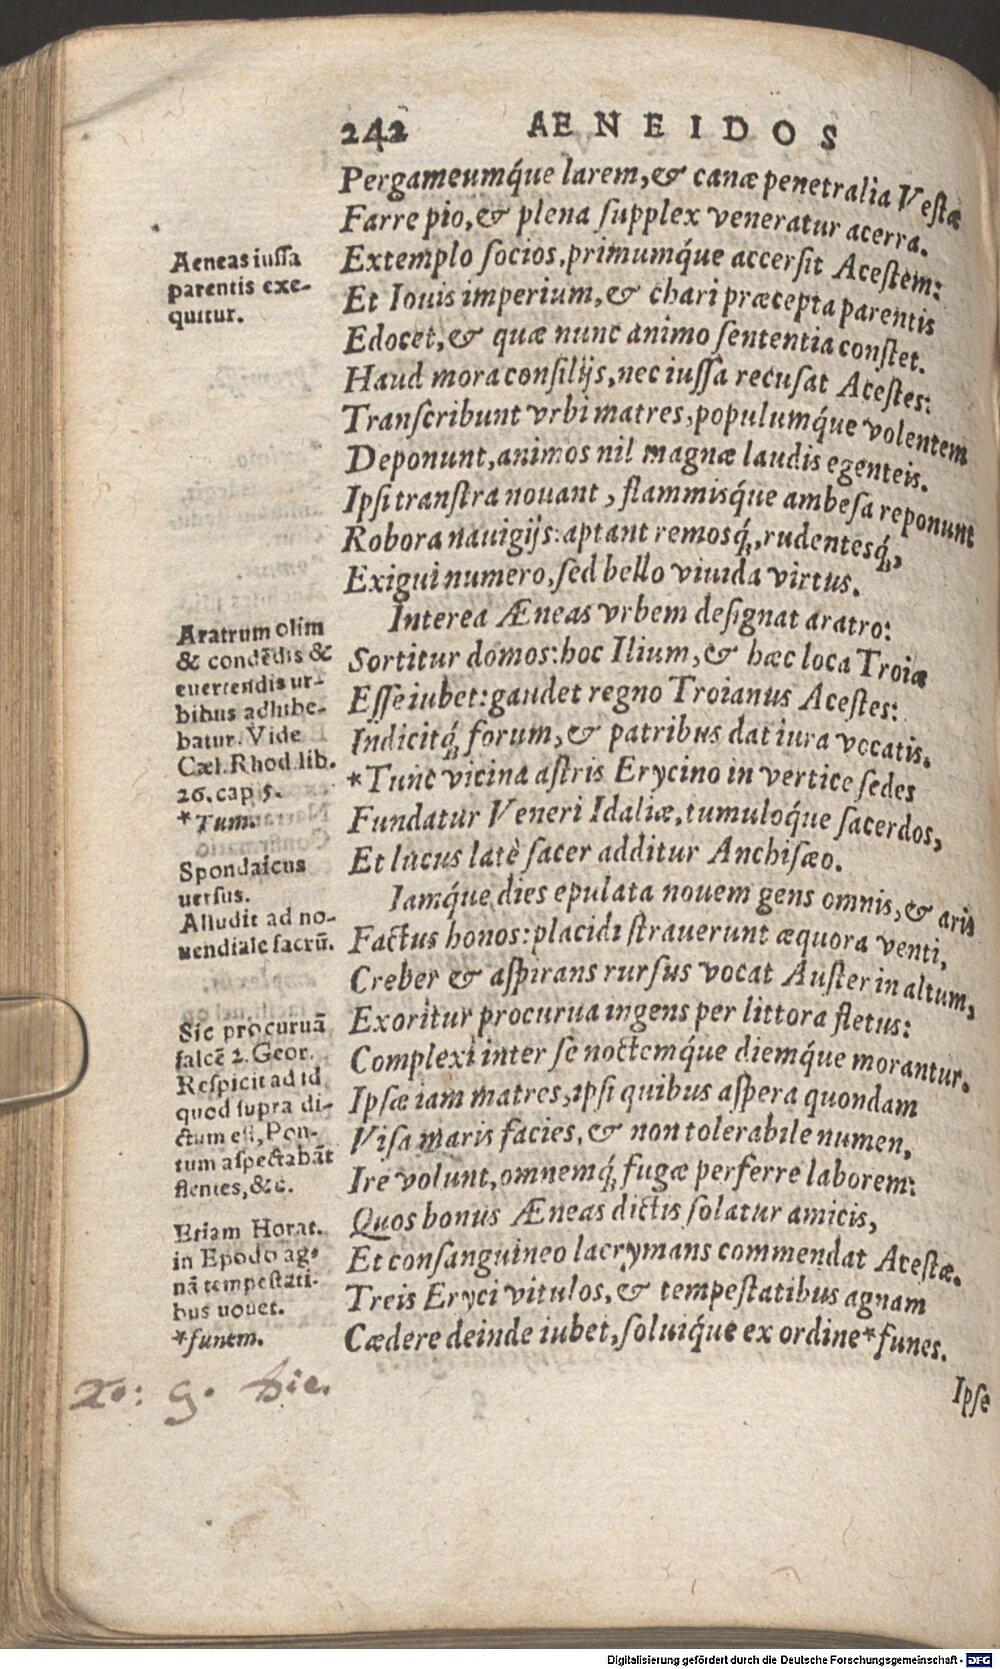 242 AENEIDOS
Pergameumq́ue larem, & canæ penetralia Vestæ
Farre pio, & plena supplex veneratur acerra.
Extemplo socios, primumq́ue accersit Acestem:
Et Iouis imperium, & chari præcepta parentis
Edocet, & quæ nunc animo sententia constet.
Haud mora consilijs, nec iussa recusat Acestes:
Transcribunt vrbi matres, populumq́ue volentem
Deponunt, animos nil magnæ laudis egenteis.
Ipsi transtra nouant, flammisq́ue ambesa reponunt
Robora nauigijs: aptant remosq́;, rudentesq́;,
Exigui numero, sed bello viuida virtus.
Interea Æneas vrbem designat aratro:
Sortitur domos: hoc Ilium, & hæc loca Troiæ
Esse iubet: gaudet regno Troianus Acestes:
Indicitq́; forum, & patribus dat iura vocatis.
*Tunc vicina astris Erycino in vertice sedes
Fundatur Veneri Idaliæ, tumuloq́ue sacerdos,
Et lucus latè sacer additur Anchisæo.
Iamq́ue dies epulata nouem gens omnis, & aris
Factus honos: placidi strauerunt æquora venti,
Creber & aspirans rursus vocat Auster in altum,
Exoritur procurua ingens per littora fletus:
Complexi inter se noctemq́ue diemq́ue morantur.
Ipsæ iam matres, ipsi quibus aspera quondam
Visa maris facies, & non tolerabile numen,
Ire volunt, omnemq́; fugæ perferre laborem:
Quos bonus Æneas dictis solatur amicis,
Et consanguineo lacrymans commendat Acestæ.
Treis Eryci vitulos, & tempestatibus agnam
Cædere deinde iubet, soluiq́ue ex ordine *funes.
Ipse
Aeneas iussa
parentis exe-
quitur.
Aratrum olim
& condēdis &
euertendis ur-
bibus adhibe-
batur. Vide
Cæl. Rhod. lib.
26. cap 5.
*Tum.
Spondaicus
uersus.
Alludit ad no-
uendiale sacrū.
Sic procuruā
falcē 2. Geor.
Respicit ad id
quod supra di-
ctum est, Pon-
tum aspectabāt
flentes, &c.
Etiam Horat.
in Epodo ag-
nā tempestati-
bus uouet.
*funem.
Digitalisierung gefördert durch die Deutsche Forschungsgemeinschaft - DFG